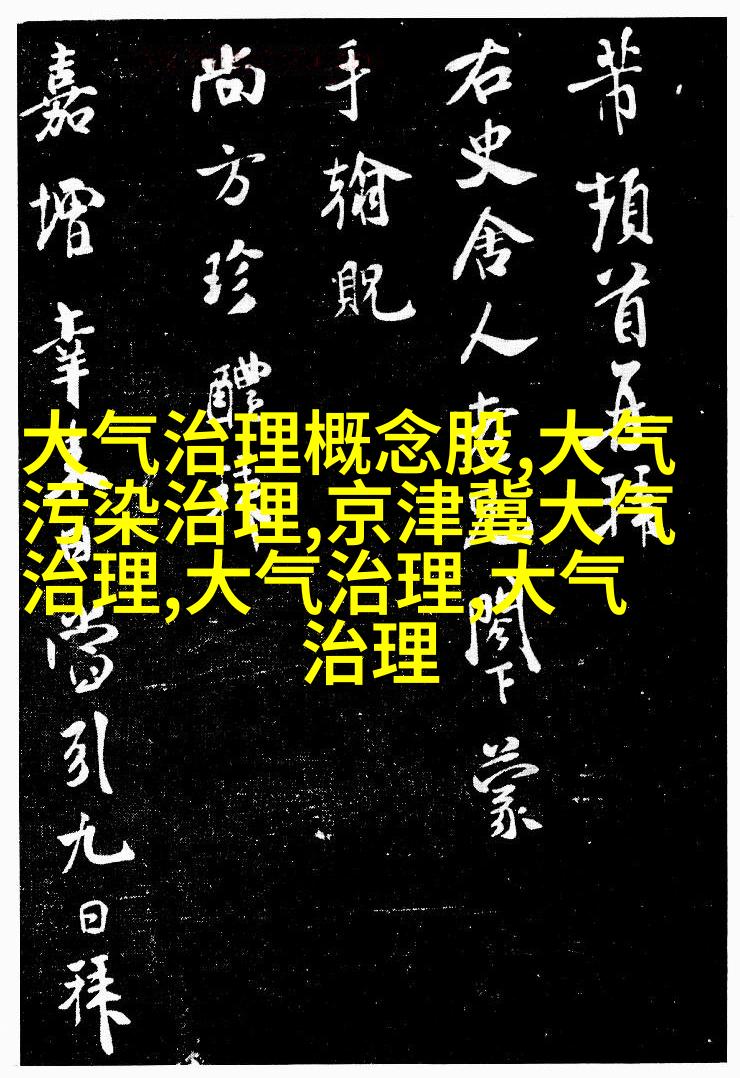 芾頓首再拜
右史舍人
閣下蒙
手翰貺
尚方珍醴
嘉增幸
當引九日拜
大气治理概念股,大气
污染治理,京津冀大气
治理,大气治理,大气
治理